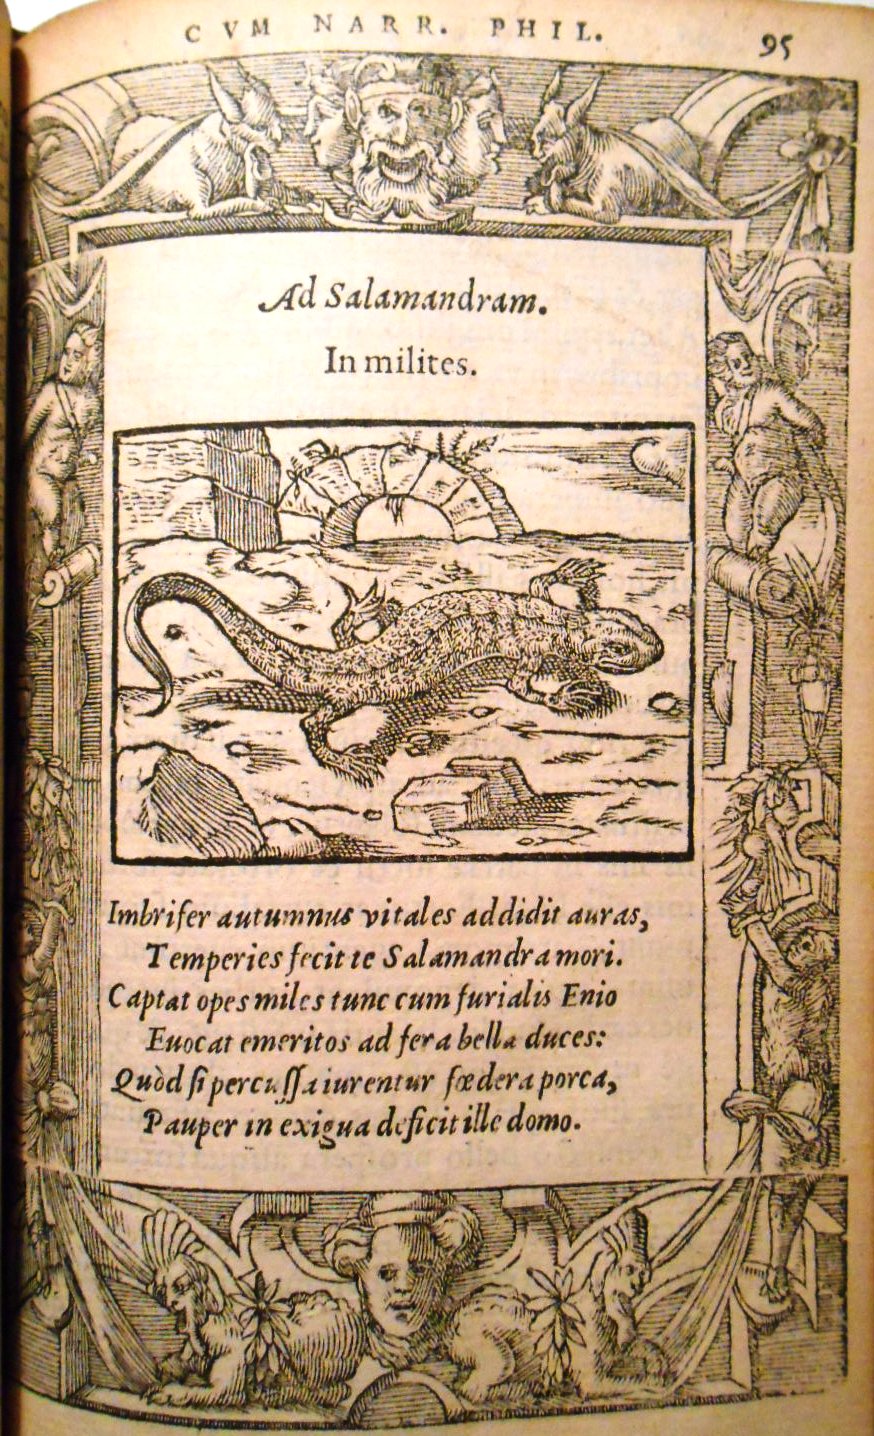 CVM NARR. PHIL. 95
Ad Salamandram.
In milites.
Imbrifer autumnus vitales addidit auras,
Temperies fecit te Salamandra mori.
Captat opes miles tunc cum furialis Enio
Euocat emeritos ad fera bella duces:
Quòd si percussa iurentur fœdera porca,
Pauper in exigua deficit ille domo.